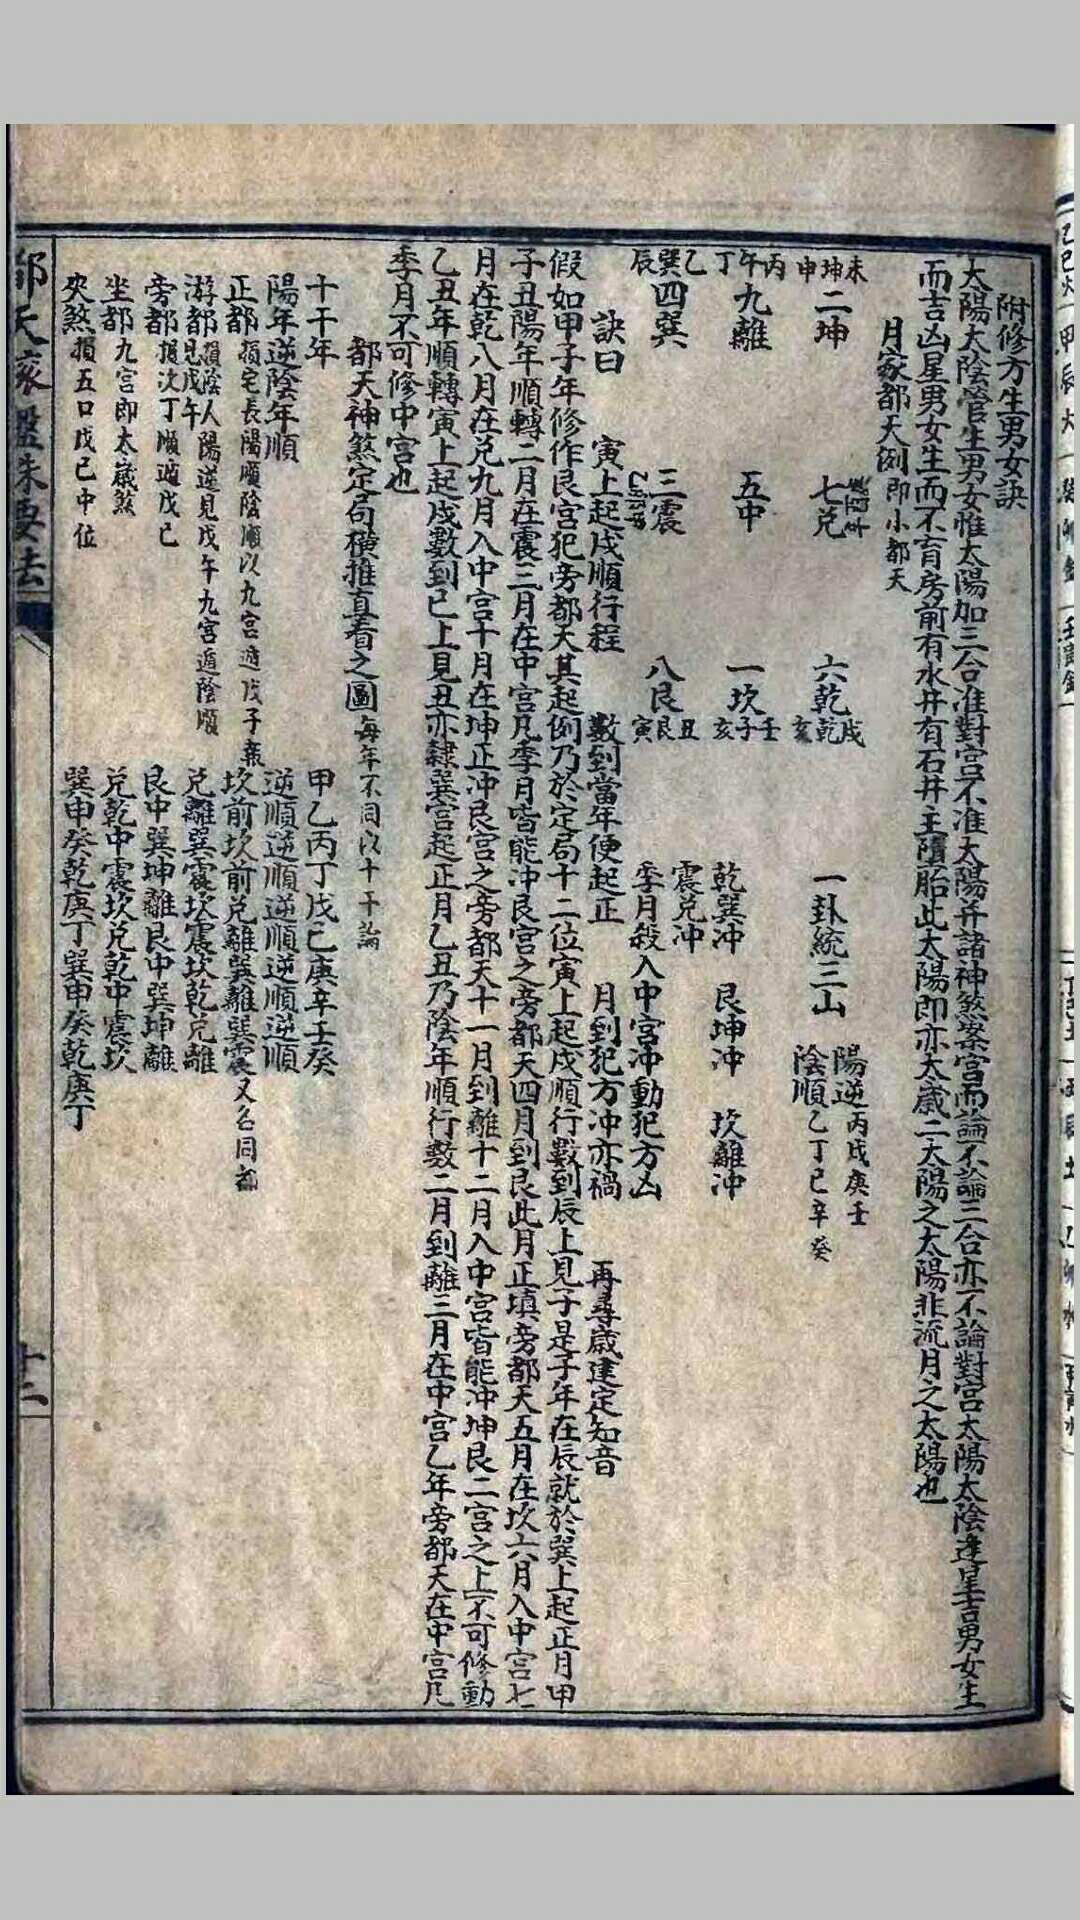 附修方生男女訣
太陽太陰管生男女惟太陽加三合准對宮不准太陽并諸神煞案宮而論不論三合亦不論對宮太陽太陰逢星吉男女生
而吉凶星男女生而不育房前有水井有石井主隨胎此太陽即亦太歲二太陽之太陽非流月之太陽也
月家都天例即小都天
未坤申 二坤 七兌 六乾 戌乾亥 一卦統三山 陽逆丙戊庚壬
陰順乙丁己辛癸
丙午丁 九離 五中 一坎 壬子亥 乾巽冲 艮坤冲 坎離冲
乙巽辰 四巽 三震 八艮 丑艮寅 震兌冲
季月殺入中宮冲動犯方凶
訣曰 寅上起戌順行程 數到當年便起正 月到犯方冲亦禍 再尋歲建定知音
假如甲子年修作艮宮犯旁都天其起例乃於定局十二位寅上起戌順行數到辰上見子是子年在辰就於巽上起正月甲
子丑陽年順轉二月在震三月在中宮凡季月皆能冲艮宮之旁都天四月到艮此月正填旁都天五月在坎六月入中宮七
月在乾八月在兌九月入中宮十月在坤正冲艮宮之旁都天十一月到離十二月入中宮皆能冲坤艮二宮之上不可修動
乙丑年順轉寅上起戌數到巳上見丑亦隸巽宮起正月乙丑乃陰年順行數二月到離三月在中宮乙年旁都天在中宮凡
季月不可修中宮也
都天神煞定局橫推直看之圖每年不同以十干論
十干年 甲乙丙丁戊己庚辛壬癸
陽年逆陰年順 逆順逆順逆順逆順逆順
正都損宅長陽順陰順以九宮遁戊子 坎前坎前兌離巽離巽震又名同都
游都損陰人陽逆見戊午九宮遁陰順見戊午 兌離巽震坎震坎乾兌離
旁都損次丁順遁戊己 艮中巽坤離艮中巽坤離
坐都九宮即太歲煞 兌乾中震坎兌乾中震坎
央煞損五口戊己中位 巽申癸乾庚丁巽申癸乾庚丁
十二